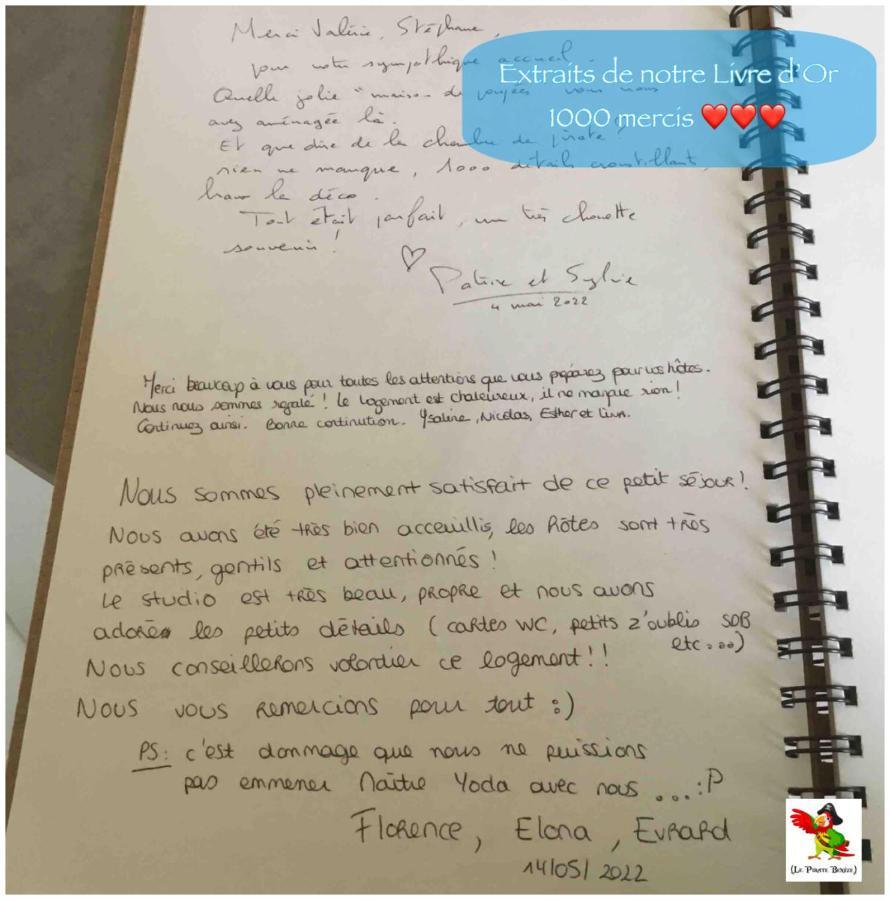 Extraits de notre Livre d'Or
1000 mercis ❤️❤️❤️
Merci Valérie, Stéphane,
pour votre sympathique accueil.
Quelle jolie "maison de poupées" vous nous
avez aménagée là.
Et que dire de la chambre de pirate!
rien ne manque, 1000 détails croustillant,
bravo la déco.
Tout était parfait, un très chouette
souvenir!
et Sylvie
4 mai 2022
Merci beaucoup à vous pour toutes les attentions que vous préparez pour vos hôtes.
Nous nous sommes régalé! Le logement est chaleureux, il ne manque rien!
Continuez ainsi. Bonne continution. Ysaline, Nicolas, Esther et
Nous sommes pleinement satisfait de ce petit séjour!
Nous avons été très bien acceuillis, les hôtes sont très
présents, gentils et attentionnés!
Le studio est très beau, propre et nous avons
adorés les petits détails (cartes WC, petits z'oublis SDB
etc...)
Nous conseillerons volontier ce logement!!
Nous vous remercions pour tout :)
PS: c'est dommage que nous ne puissions
pas emmener Maître Yoda avec nous ...:P
Florence, Elona, Evrard
14/05/2022
(Le Pirate Benèze)